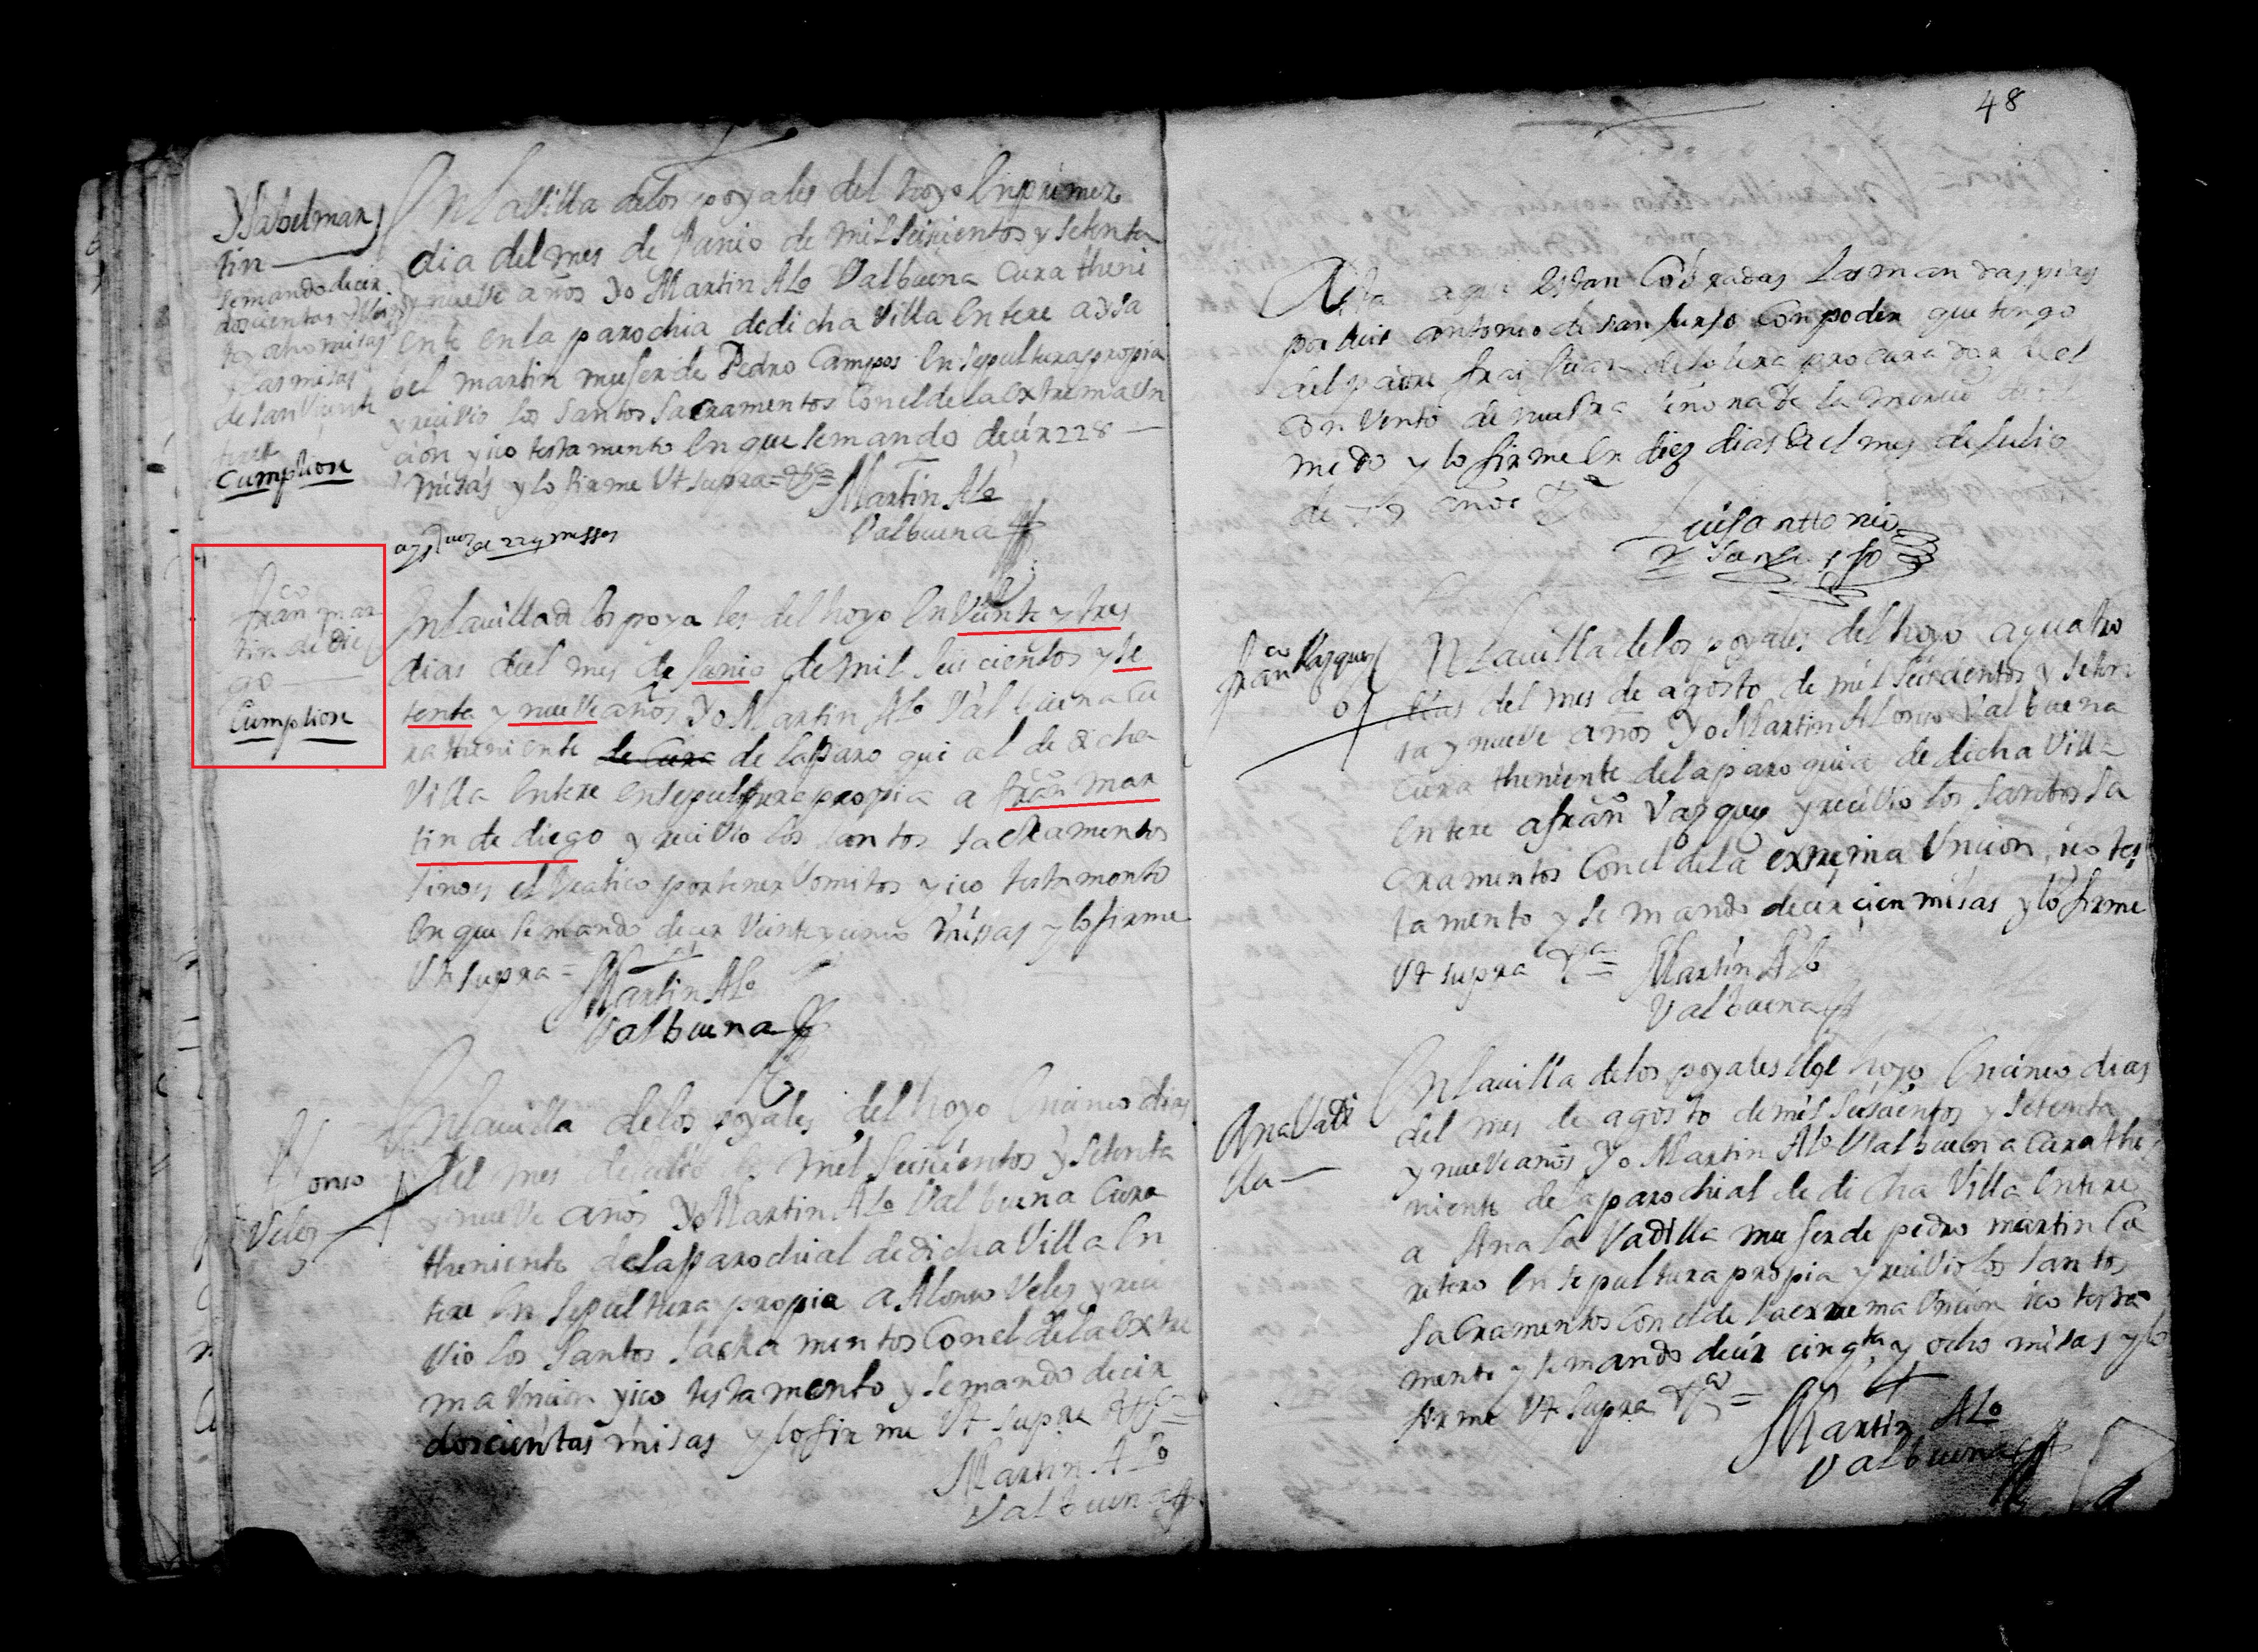 48
Ysabel mar
tin
se mando decir
doscientas y vein
te y ocho misas
y las misas
de San Vicente
Cumpliose
En la Villa de los poyales del hoyo En primero
dia del mes de Junio de mil seiscientos y setenta
y nueve años Yo Martin Alo Valbuena Cura theni
ente en la parochia de dicha Villa Entere a Ysa
bel martin muger de Pedro Campos En sepultura propia
y recivio los santos sacramentos Con el de la extrema un
cion y ico testamento En que se mando decir 228
misas y lo firme Vt supra
Martin Alo
Valbuena
de 229 missas
franco mar
tin de die
go
Cumpliose
En la uilla de los poyales del hoyo En Veinte y tres
dias del mes de Junio de mil seis cientos y se
tenta y nueve años Yo Martin Alo Valbuena Cu
ra theniente de Cura de la Paroquial de dicha
Villa Entere En sepultura propia a franco mar
tin de diego y recivio los santos sacramentos
sino es el Viatico por tener Vomitos y ico testamento
En que se mando decir Veinte y cinco missas y lo firme
Vt supra =
Martin Alo
Valbuena
Alonso
Veles
En la uilla de los poyales del hoyo En cinco dias
del mes de Julio de mil seiscientos y setenta
y nueve años Yo Martin Alo Valbuena Cura
theniente de la parochial de dicha Villa En
tere En sepultura propia a Alonso Veles y reci
vio los santos sacramentos Con el de la extre
ma Uncion y ico testamento y se mando decir
doscientas misas y lo firme Vt supra
Martin Alo
Valbuena
Asta aqui Estan Cobradas las mandas pias
por luis antonio de san Con poder que tengo
del padre frai Juan procurador de el
Convento de nuestra senora de la merced
y lo firme En diez dias de el mes de Julio
de 79 años
Luis Anttonio
franco Vazquez
En la uilla de los poyales del hoyo a quatro
dias del mes de agosto de mil seiscientos y seten
ta y nueve años Yo Martin Alonso Valbuena
Cura theniente de la paroquia de dicha Villa
Entere a franco Vazquez y recivio los santos sa
cramentos Con el de la extrema Vncion, ico tes
tamento y se mando decir cien misas y lo firme
Vt supra
Martin Alo
Valbuena
Ana Vadi
lla
En la uilla de los poyales del hoyo En cinco dias
del mes de agosto de mil seiscientos y setenta
y nueve años Yo Martin Alo Valbuena Cura the
niente de la parochial de dicha Villa Entere
a Ana la Vadilla muger de pedro martin Ca
rretero En sepultura propia y recivio los santos
sacramentos Con el de la extrema Vncion ico testa
mento y se mando decir cinqta y ocho misas y lo
firme Vt supra
Martin Alo
Valbuena